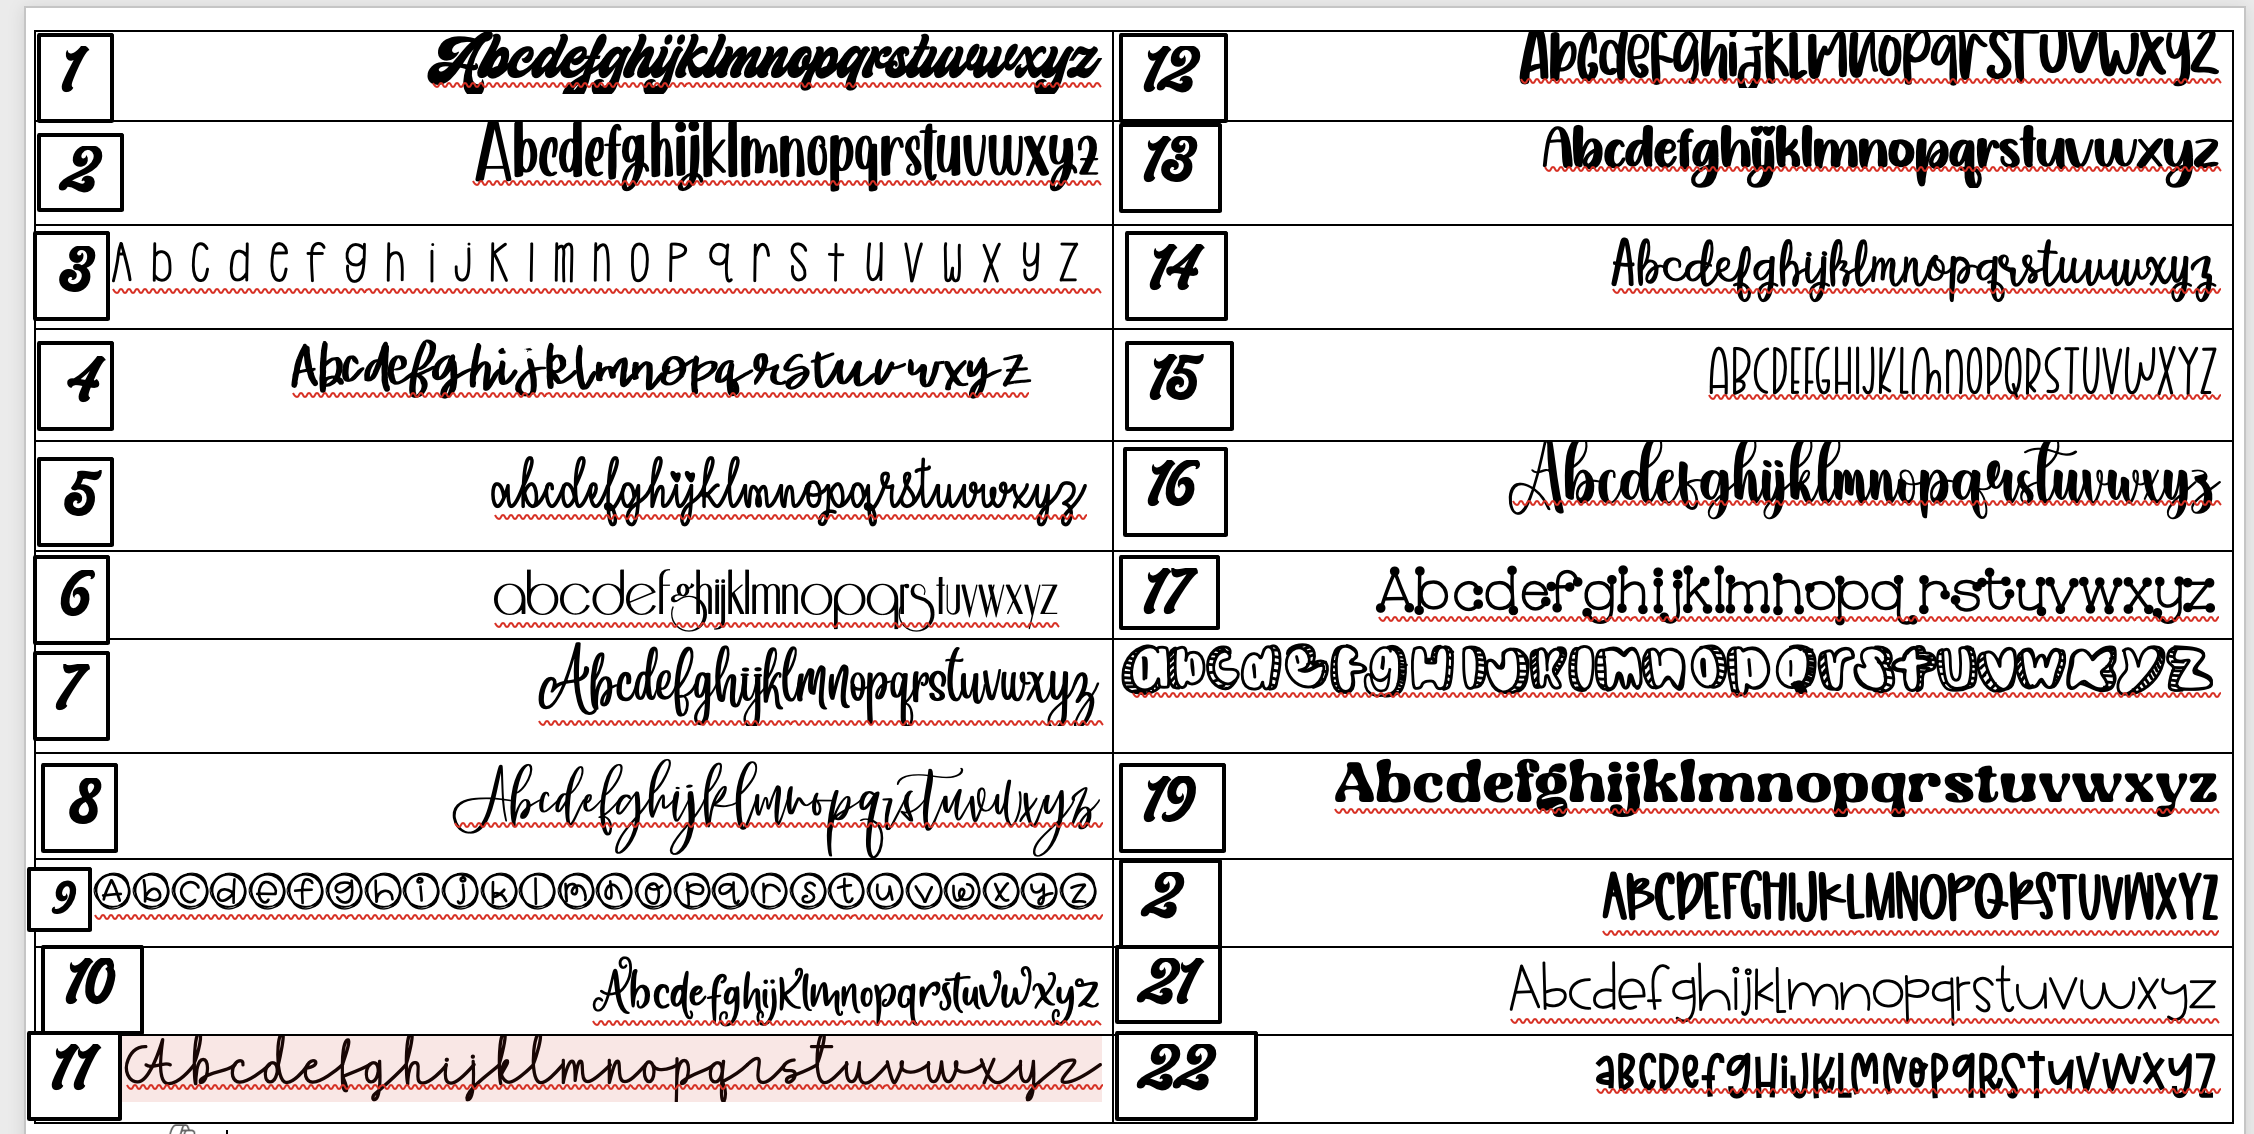 1 Abcdefghijklmnopqrstuvwxyz
2 Abcdefghijklmnopqrstuvwxyz
3 Abcdefghijklmnopqrstuvwxyz
4 Abcdefghijklmnopqrstuvwxyz
5 abcdefghijklmnopqrstuvwxyz
6 abcdefghijklmnopqrstuvwxyz
7 Abcdefghijklmnopqrstuvwxyz
8 Abcdefghijklmnopqrstuvwxyz
9 Abcdefghijklmnopqrstuvwxyz
10 Abcdefghijklmnopqrstuvwxyz
11 Abcdefghijklmnopqrstuvwxyz
12 Abcdefghijklmnopqrstuvwxyz
13 Abcdefghijklmnopqrstuvwxyz
14 Abcdefghijklmnopqrstuvwxyz
15 ABCDEFGHIJKLMNOPQRSTUVWXYZ
16 Abcdefghijklmnopqrstuvwxyz
17 Abcdefghijklmnopqrstuvwxyz
abcdefgHIJKlmnopqrstuvwxyz
19 Abcdefghijklmnopqrstuvwxyz
2 ABCDEFGHIJKLMNOPQRSTUVWXYZ
21 Abcdefghijklmnopqrstuvwxyz
22 aBCDefgHiJKLMNOPQRSTUVWXYZ